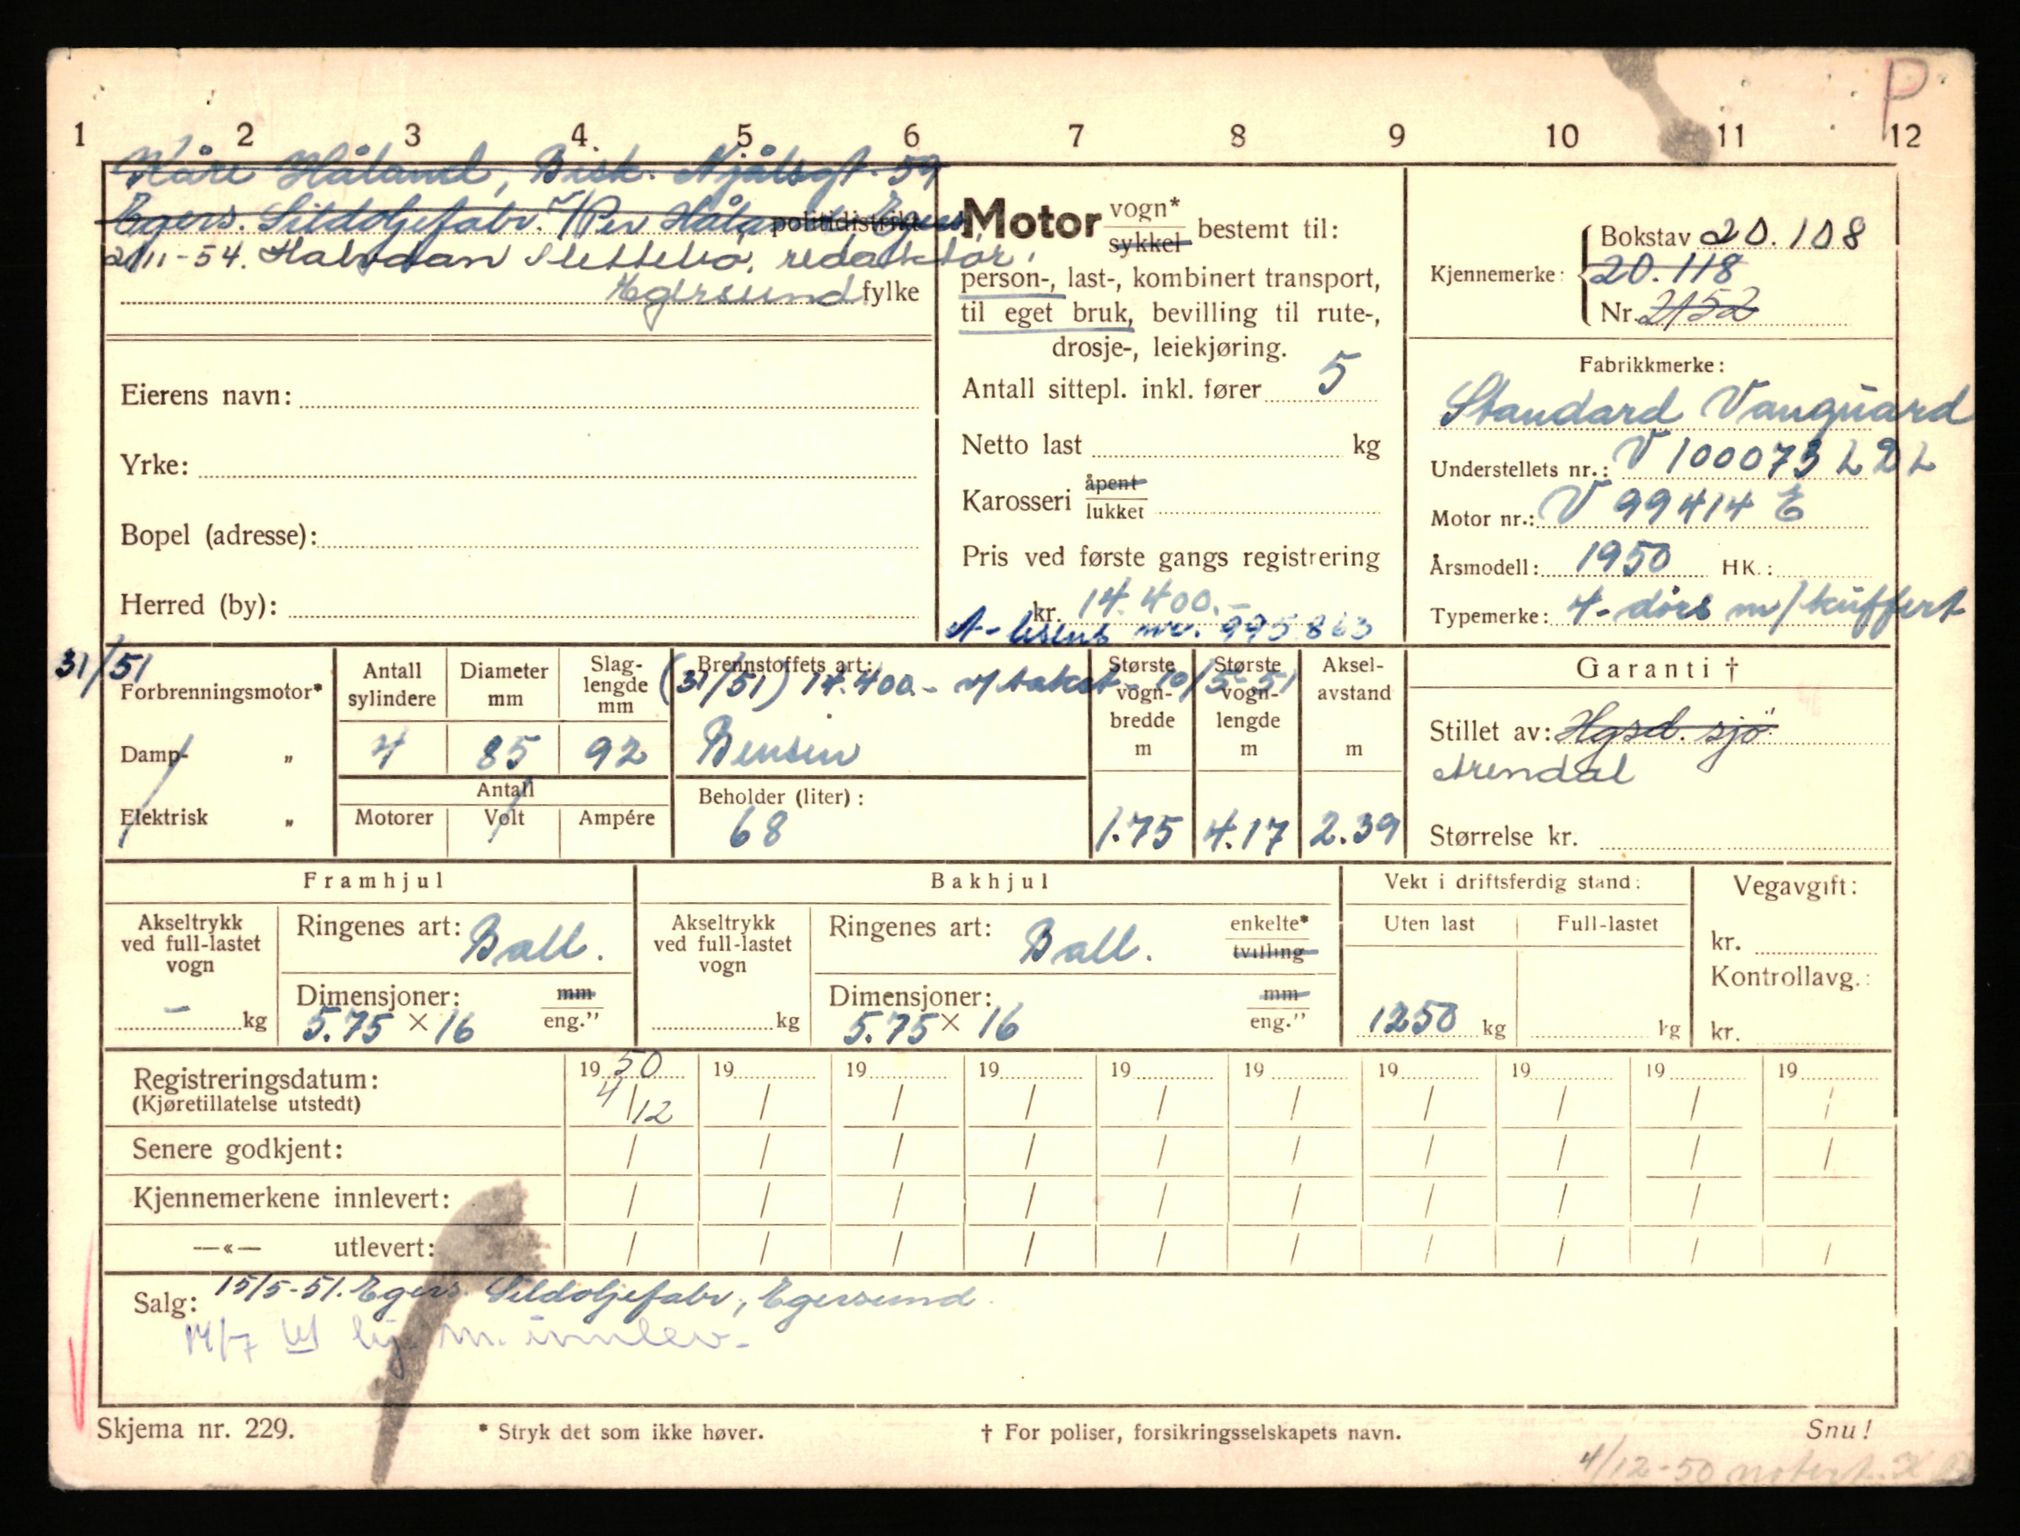 P
1 2 3 4 5 6 7 8 9 10 11 12
Kåre Håland, Bisk. Njålsgt. 59
Egers. Sildoljefabr. v/Per Håland Egers. politidistrikt
2/11-54. Halvdan Slettebø, redaktør,
Egersund fylke
Eierens navn:
Yrke:
Bopel (adresse):
Herred (by):
Motor vogn* sykkel bestemt til:
person-, last-, kombinert transport,
til eget bruk, bevilling til rute-,
drosje-, leiekjøring.
Antall sittepl. inkl. fører 5
Netto last kg
Karosseri åpent lukket
Pris ved første gangs registrering
kr. 14.400.-
A-lisens nr. 995863
Kjennemerke: Bokstav 20.108
20.118
Nr. 2152
Fabrikkmerke:
Standard Vanguard
Understellets nr.: V 100073 L D L
Motor nr.: V 99414 E
Årsmodell: 1950 HK.:
Typemerke: 4-dørs m/kuffert
31/51
Forbrenningsmotor*
Damp- „
Elektrisk „
Antall sylindere 4
Diameter mm 85
Slaglengde mm 92
Antall
Motorer Volt Ampére
Brennstoffets art:
(31/51) 14.400.- v/takst 10/5-51
Bensin
Beholder (liter):
68
Største vognbredde m 1.75
Største vognlengde m 4.17
Akselavstand m 2.39
Garanti †
Stillet av: Hgsd. sjø
Arendal
Størrelse kr.
Framhjul
Akseltrykk ved full-lastet vogn
- kg
Ringenes art: Ball.
Dimensjoner: mm
5.75 × 16 eng."
Bakhjul
Akseltrykk ved full-lastet vogn
kg
Ringenes art: Ball. enkelte* tvilling
Dimensjoner: mm
5.75 × 16 eng."
Vekt i driftsferdig stand:
Uten last Full-lastet
1250 kg kg
Vegavgift:
kr.
Kontrollavg.:
kr.
Registreringsdatum: 1950 19 19 19 19 19 19 19 19 19
(Kjøretillatelse utstedt) 4/12 / / / / / / / / /
Senere godkjent: / / / / / / / / / /
Kjennemerkene innlevert: / / / / / / / / /
—«— utlevert: / / / / / / / / / /
Salg: 15/5-51. Egers. Sildoljefabr., Egersund
m. innlev.
Skjema nr. 229.
* Stryk det som ikke høver.
† For poliser, forsikringsselskapets navn.
Snu!
4/12-50 notert.